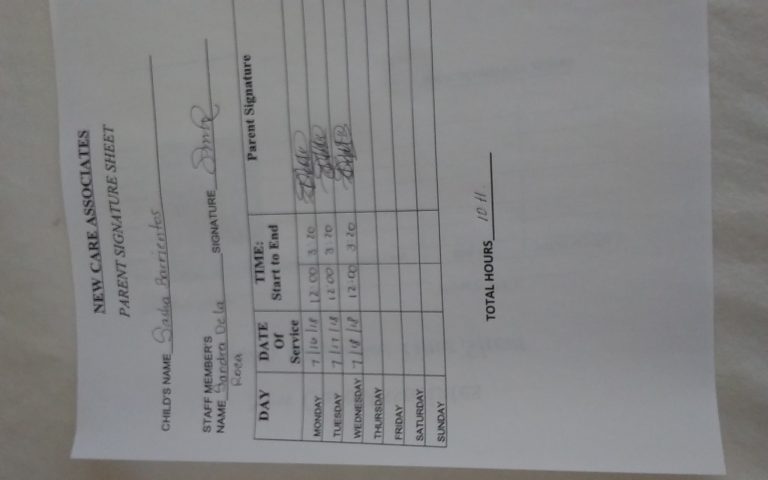 NEW CARE ASSOCIATES
PARENT SIGNATURE SHEET
CHILD'S NAME Sasha Barrientos
STAFF MEMBER'S
NAME Sandra De la SIGNATURE
Rosa
DAY DATE Of Service TIME: Start to End Parent Signature
MONDAY 7/16/18 12:00 3:20
TUESDAY 7/17/18 12:00 3:20
WEDNESDAY 7/18/18 12:00 3:20
THURSDAY
FRIDAY
SATURDAY
SUNDAY
TOTAL HOURS 10 H.